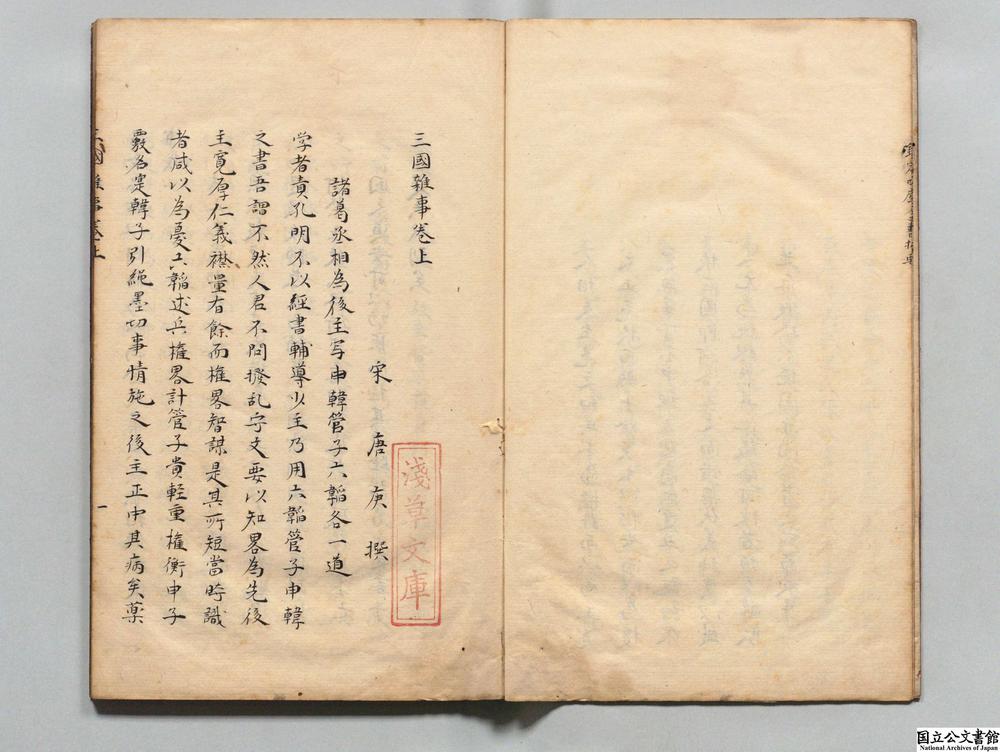 三國雜事卷上
宋 唐 庚 撰
諸葛丞相為後主写申韓管子六韜各一道
学者責孔明不以經書輔導少主乃用六韜管子申韓
之書吾謂不然人君不問撥乱守文要以知畧為先後
主寛厚仁義襟量有餘而權畧智謀是其所短當時識
者咸以為憂六韜述兵權畧計管子貴輕重權衡申子
覈名実韓子引繩墨切事情施之後主正中其病矣薬
三國雜事卷上
一
淺草文庫
国立公文書館
National Archives of Japan